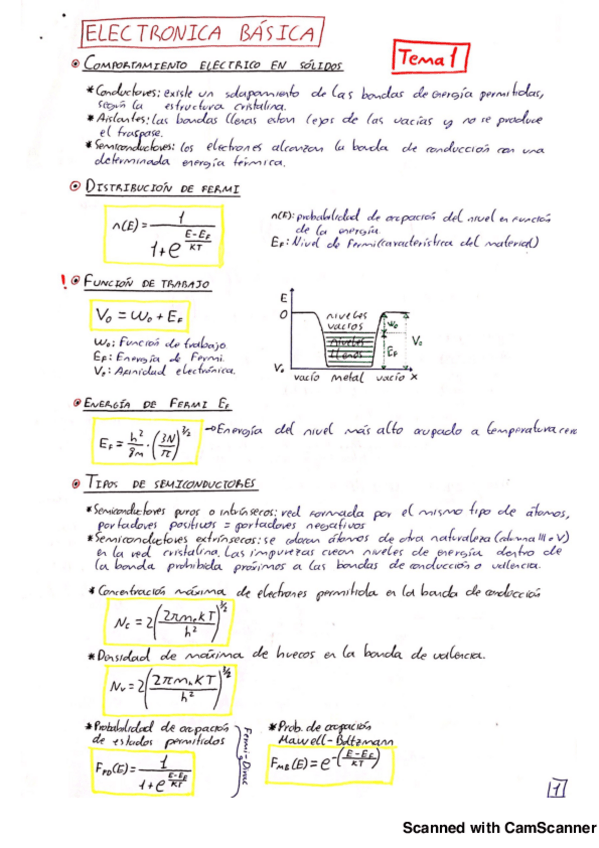 ELECTRONICA BÁSICA
Tema 1
COMPORTAMIENTO ELECTRICO EN SÓLIDOS
*Conductores: existe un solapamiento de las bandas de energía permitidas,
según la estructura cristalina.
*Aislantes: las bandas llenas estan lejos de las vacías y no se produce
el traspase.
*Semiconductores: los electrones alcanzan la banda de conducción con una
determinada energía térmica.
DISTRIBUCIÓN DE FERMI
n(E) = 1 / (1+e^((E-EF)/KT))
n(E): probabilidad de ocupación del nivel en función
de la energía
EF: Nivel de Fermi (característica del material)
! FUNCIÓN DE TRABAJO
V0 = W0 + EF
W0: Función de trabajo
EF: Energía de Fermi.
V0: Afinidad electrónica.
E
0
niveles
vacios
niveles
llenos
W0
EF
V0
V0
vacío metal vacío x
ENERGÍA DE FERMI EF
EF = h²/8m · (3N/π)^(2/3) → Energía del nivel más alto ocupado a temperatura cero
TIPOS DE SEMICONDUCTORES
*Semiconductores puros o intrínsecos: red formada por el mismo tipo de átomos,
portadores positivos = portadores negativos
*Semiconductores extrínsecos: se colocan átomos de otra naturaleza (columna III o V)
en la red cristalina. Las impurezas crean niveles de energía dentro de
la banda prohibida próximos a las bandas de conducción o valencia.
*Concentración máxima de electrones permitida en la banda de conducción
Nc = 2(2πmeKT/h²)^(3/2)
*Densidad de máxima de huecos en la banda de valencia.
Nv = 2(2πmhKT/h²)^(3/2)
*Probabilidad de ocupación
de estados permitidos
FFD(E) = 1 / (1+e^((E-EF)/KT))
Fermi-Dirac
*Prob. de ocupación
Maxwell-Boltzmann
FMB(E) = e^-((E-EF)/KT)
1
Scanned with CamScanner